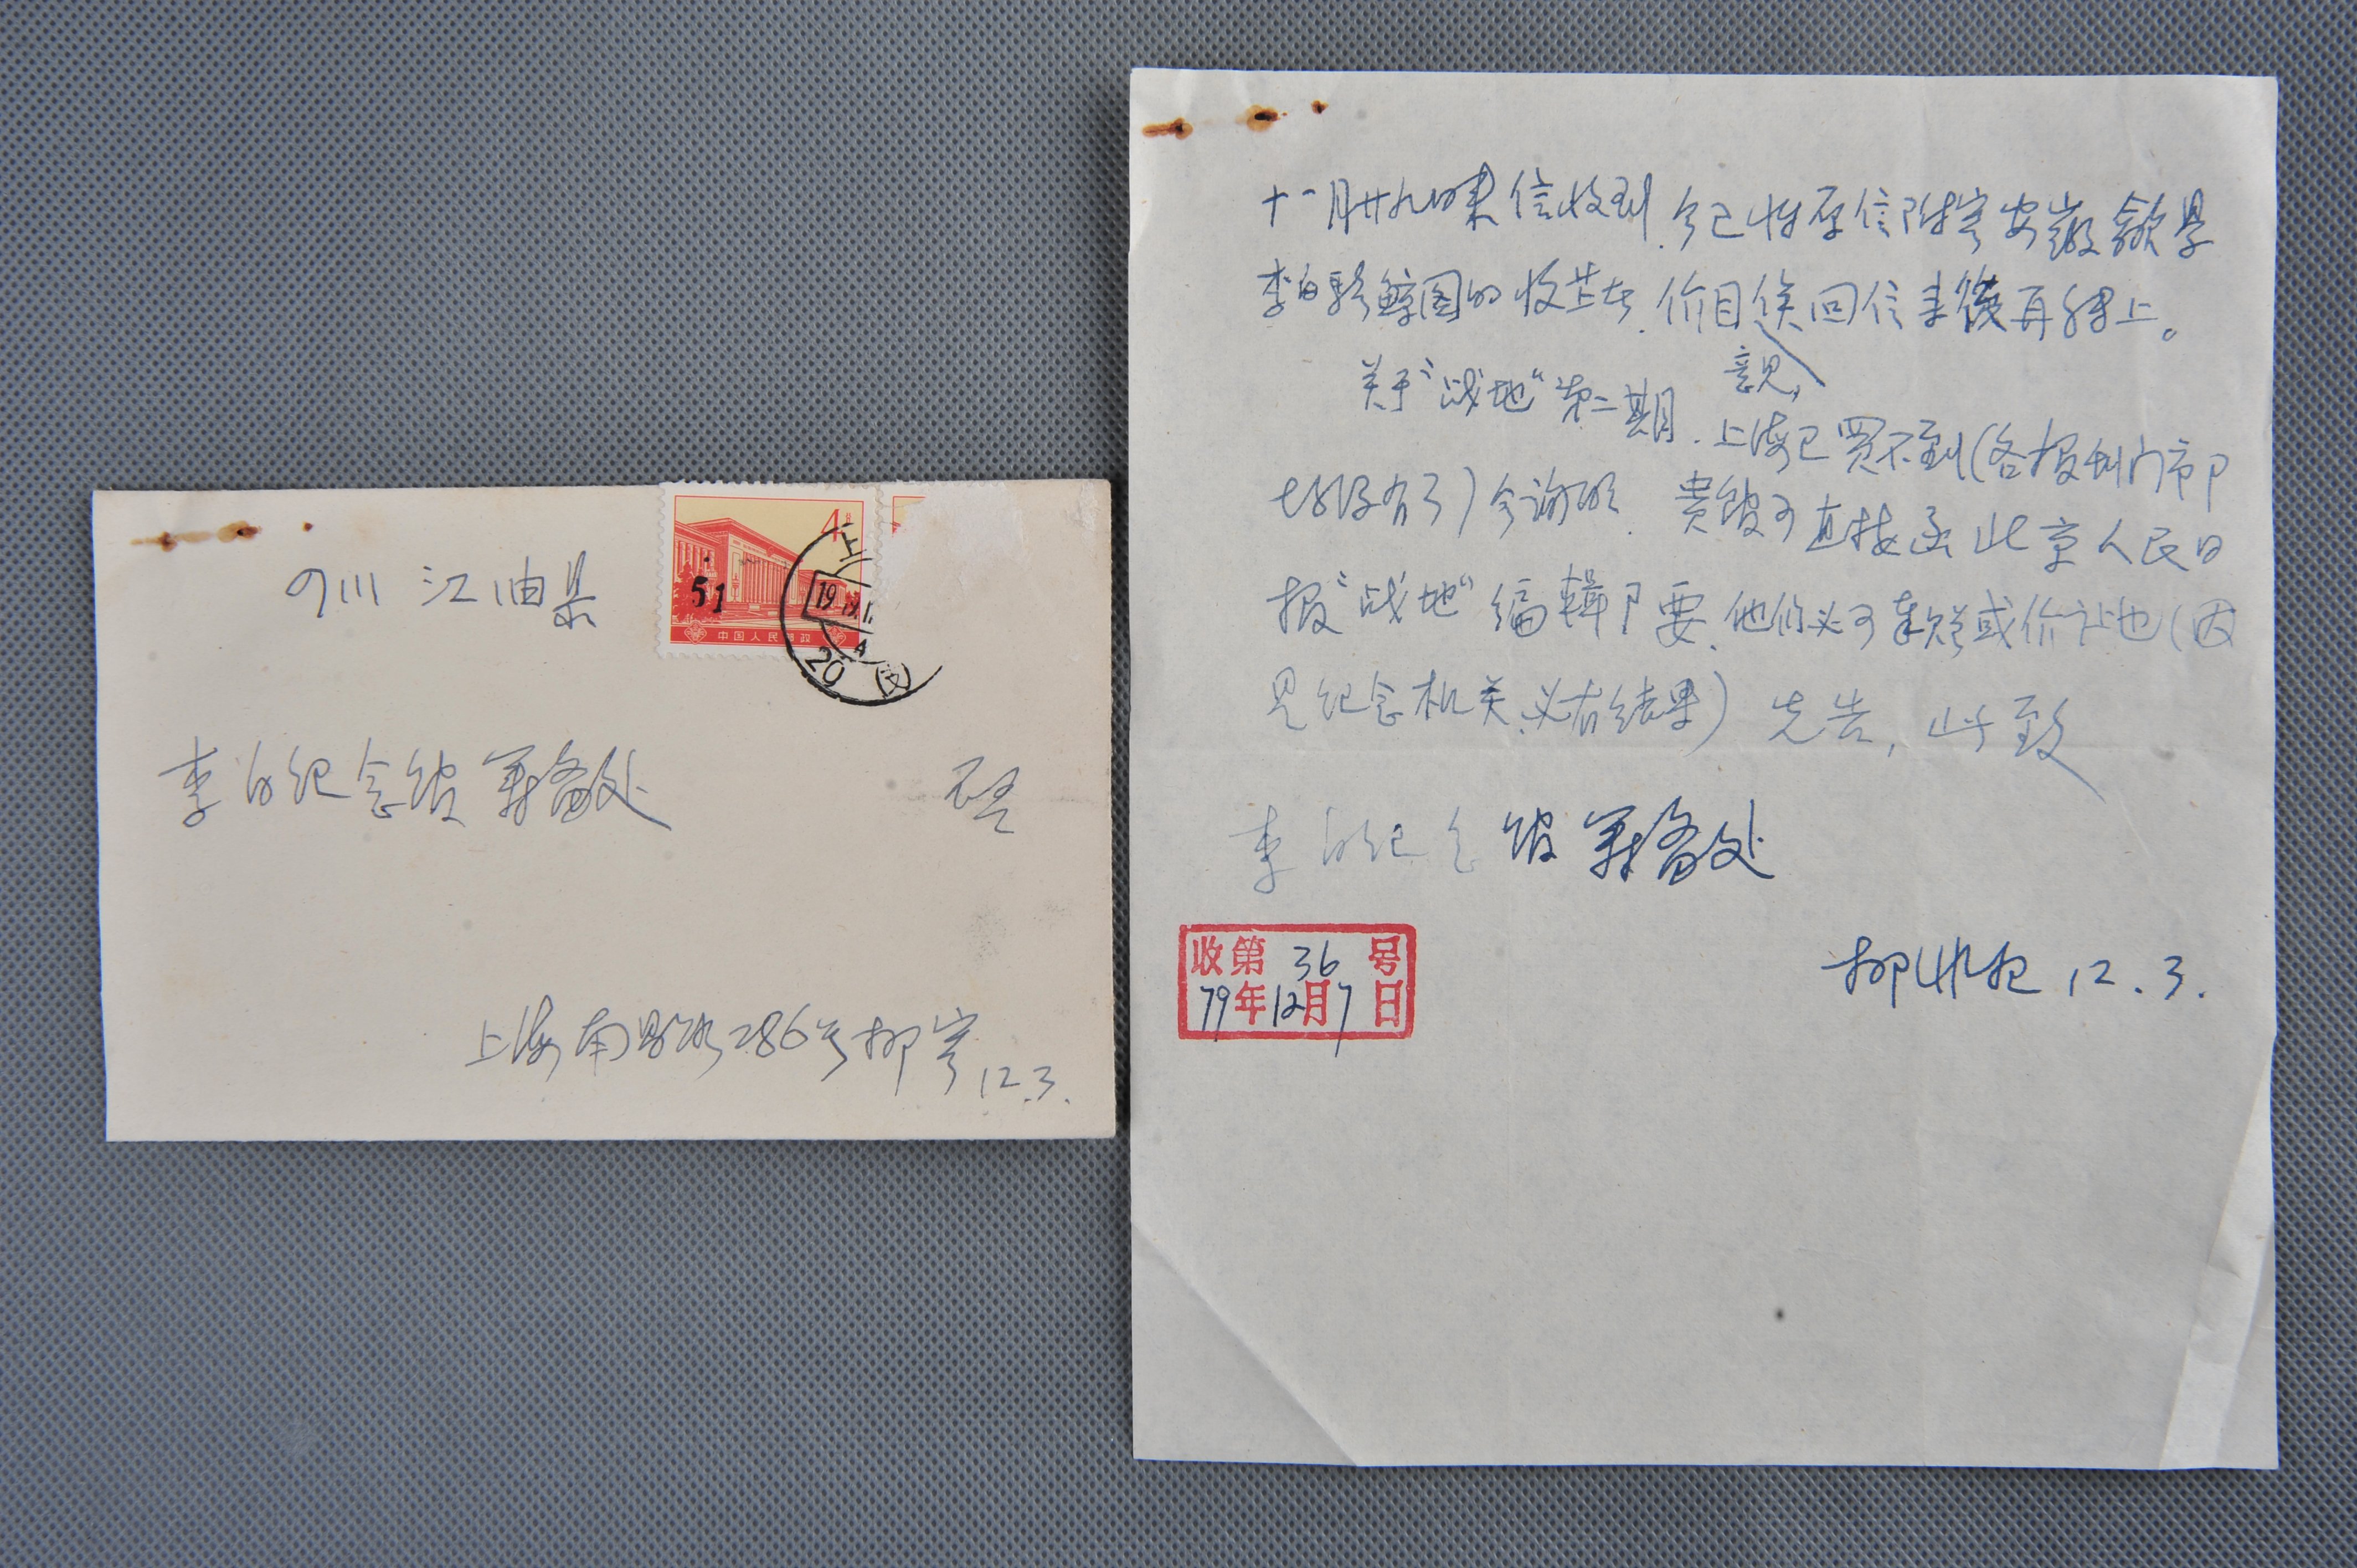 四川 江油县
4
51
中国人民邮政
上
20
李白纪念馆筹备处 启
上海南昌路286号柳寄 12.3.
十一月廿九日来信收到,今已将原信附寄安徽歙县
李白骑鲸图的收藏者,价目 俟回信来后再奉上。
意见,
关于“战地”第二期,上海已买不到(各报刊门市部
都没有了)今谢,贵馆可直接函北京人民日
报“战地”编辑部要,他们必可奉赠或价让也(因
是纪念机关,必有结果)先告,此致
李白纪念馆筹备处
柳 12.3.
收第36号
79年12月7日